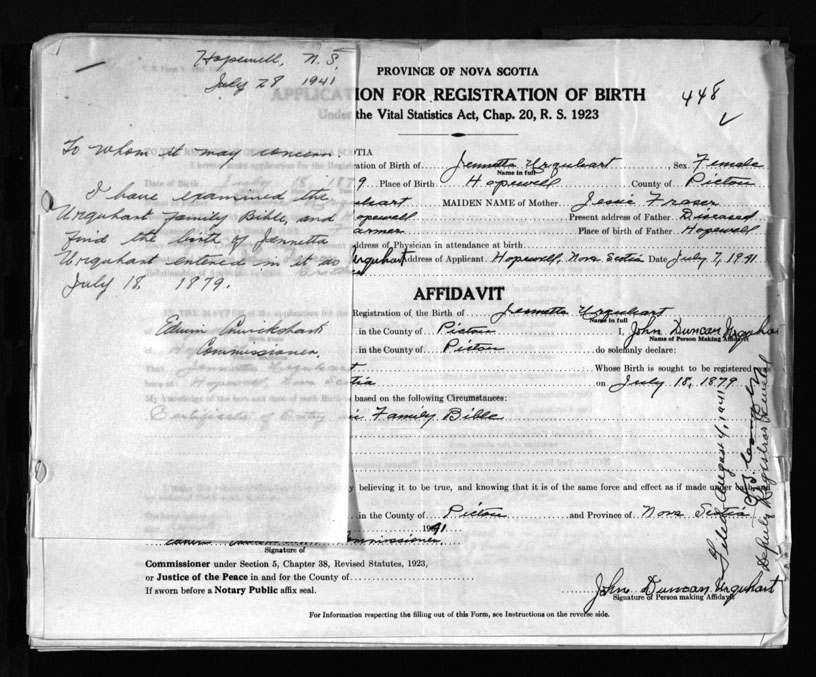 Hopewell, N. S.
July 29 1941
To whom it may concern,
I have examined the
Urquhart family Bible, and
find the birth of Jennetta
Urquhart entered in it as
July 18 1879.
Edwin Cruickshank
Commissioner,
PROVINCE OF NOVA SCOTIA
APPLICATION FOR REGISTRATION OF BIRTH
448
Under the Vital Statistics Act, Chap. 20, R. S. 1923
ation of Birth of Jennetta Urquhart Sex Female
Name in full
9 Place of Birth Hopewell County of Pictou
uhart MAIDEN NAME of Mother Jessie Fraser
opewell Present address of Father Deceased
armer Place of birth of Father Hopewell
ddress of Physician in attendance at birth
Urquhart Address of Applicant Hopewell, Nova Scotia Date July 7, 1941
AFFIDAVIT
Registration of the Birth of Jennetta Urquhart
Name in full
in the County of Pictou I, John Duncan Urquha
Name of Person Making Affidavit
in the County of Pictou do solemnly declare:
Whose Birth is sought to be registered
on July 18, 1879
based on the following Circumstances:
Certificate of Entry in Family Bible
y believing it to be true, and knowing that it is of the same force and effect as if made under
in the County of Pictou and Province of Nova Scotia
1941
Commissioner
Signature of
Commissioner under Section 5, Chapter 38, Revised Statutes, 1923,
or Justice of the Peace in and for the County of
If sworn before a Notary Public affix seal.
John Duncan Urquhart
Signature of Person making Affidavit
For Information respecting the filling out of this Form, see Instructions on the reverse side.
Filed August 4, 1941
Deputy Registrar General